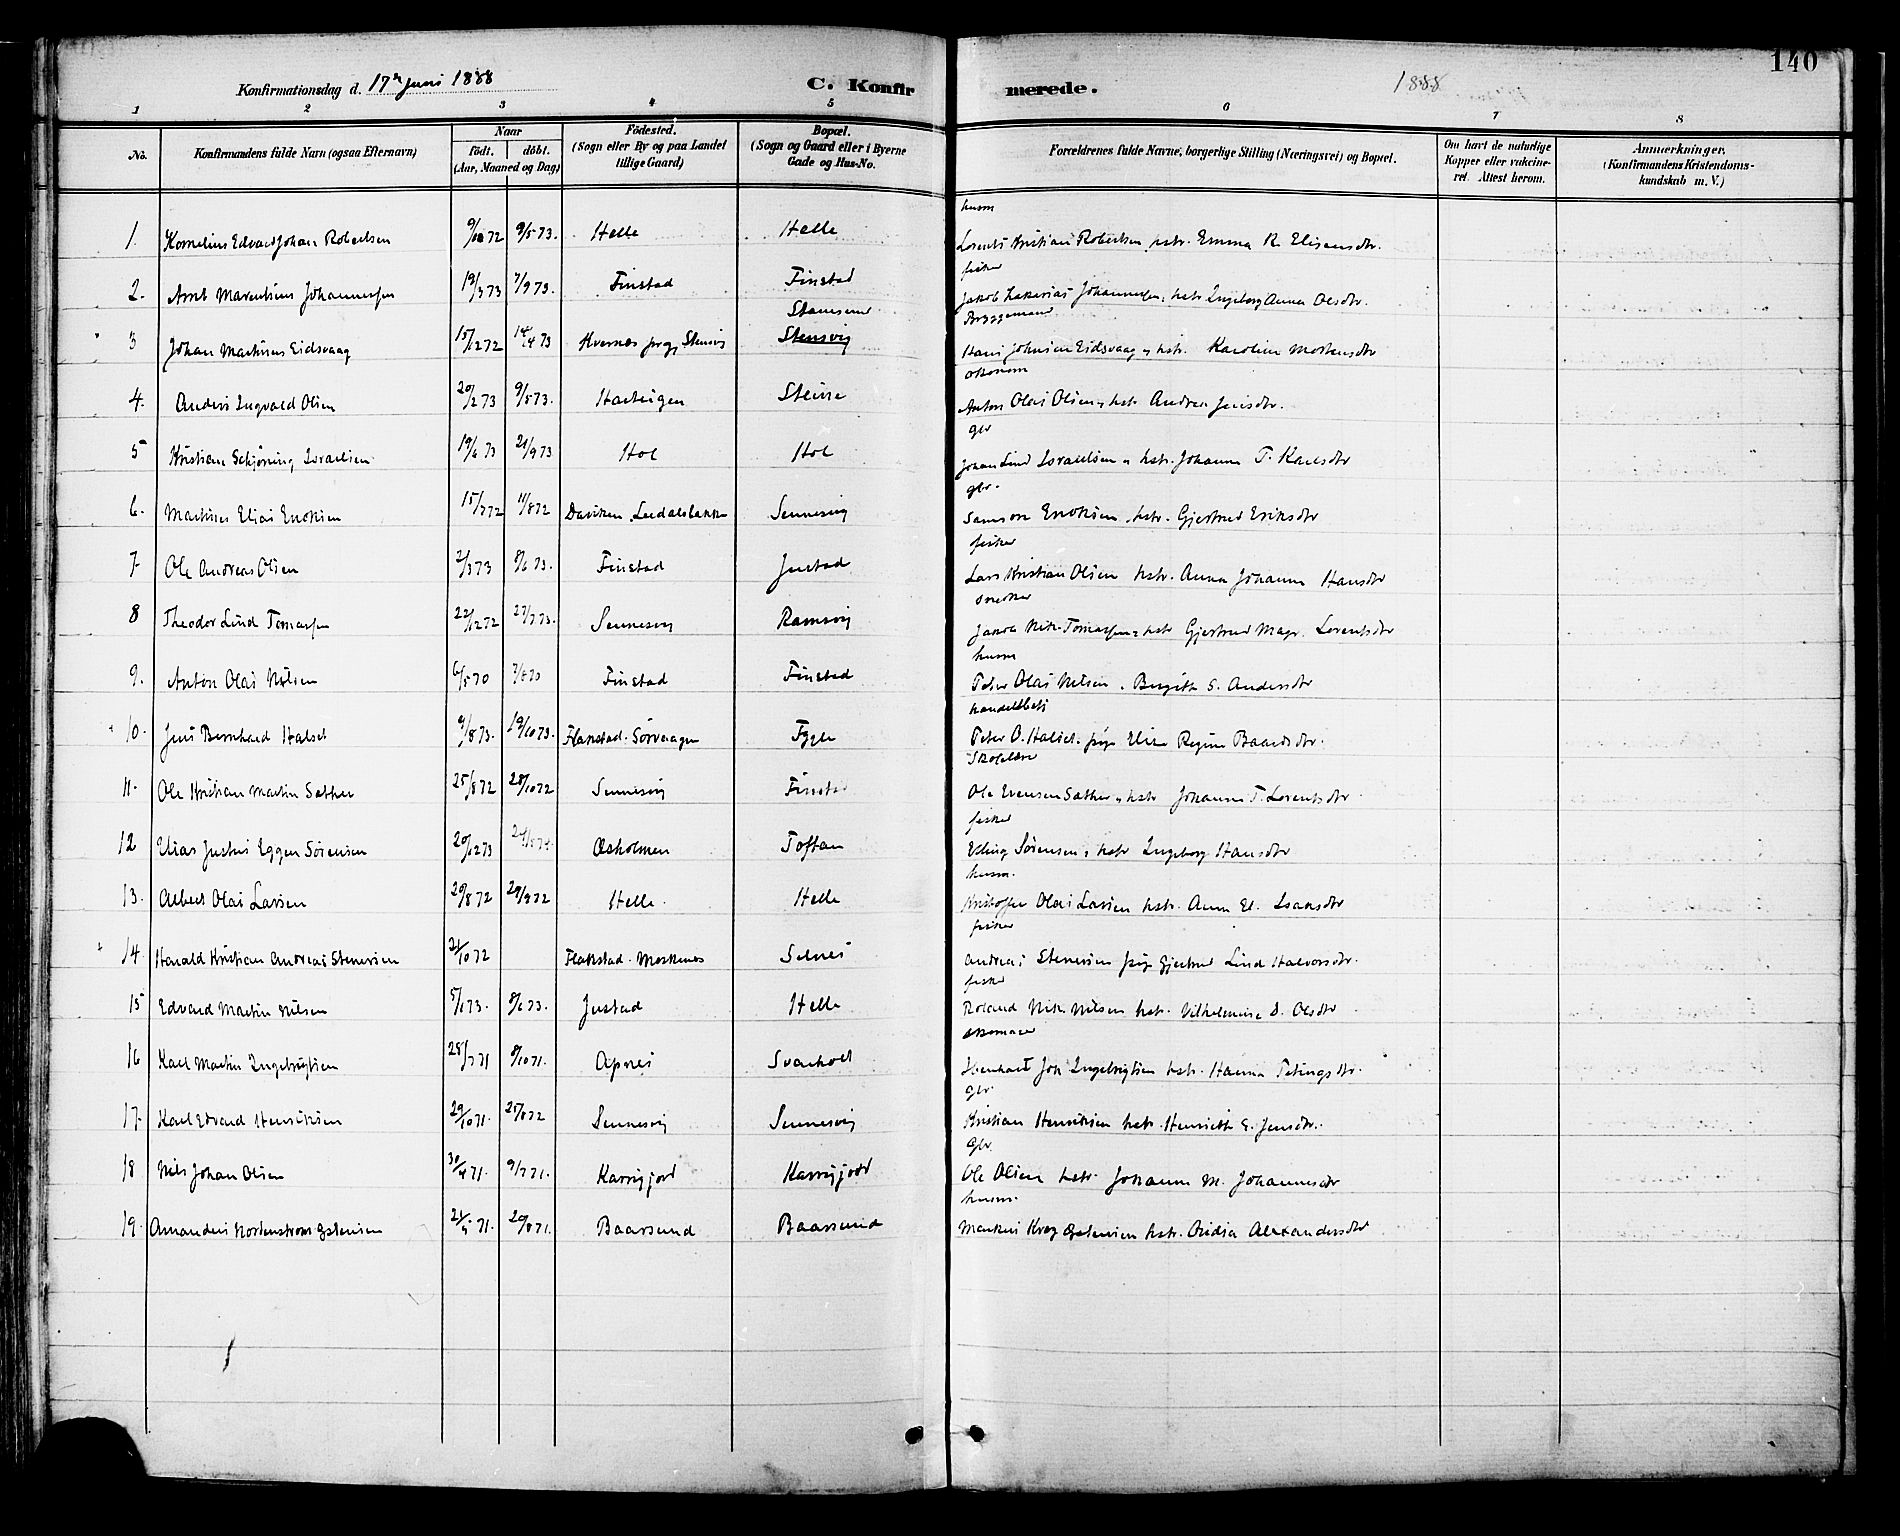 140
Konfirmationsdag d. 17de Juni 1888
C. Konfirmerede.
1888
1 2 3 4 5 6 7 8
No.
Konfirmandens fulde Navn (ogsaa Efternavn)
Naar
födt. döbt.
(Aar, Maaned og Dag)
Födested.
(Sogn eller By og paa Landet
tillige Gaard)
Bopæl.
(Sogn og Gaard eller i Byerne
Gade og Hus-No.
Forældrenes fulde Navne, borgerlige Stilling (Næringsvei) og Bopæl.
Om havt de naturlige
Kopper eller vakcine-
ret. Attest herom.
Anmærkninger.
(Konfirmandens Kristendoms-
kundskab m. V.)
husm
1. Kornelius Edvard Johan Robertsen 9/5 73. Helle Helle Lorents Kristian Robertsen, hstr. Emma R. Elisensdtr.
fisker
2. Arnt Marentius Johannessen 19/3 73 7/9 73. Finstad Finstad Jakob Zakarias Johannessen, hstr. Ingeborg Anna Olsdtr.
Bryggemand
Stamsund
3 Johan Martinus Eidsvaag 15/12 72 14/4 73 Kvernes prgj. Stensvig Stensvig Hans Johnsen Eidsvaag, hstr. Karoline Mortensdtr
4. Anders Ingvald Olsen 20/2 73 9/5 73. Steine Anton Olai Olsen, hstr. Andrea Jensdtr.
gbr
5 Kristian Schjøning Israelsen 19/6 73 21/9 73 Hol Hol Johan Lind Israelsen, hstr. Johanna T. Karlsdtr
gbr.
6. Martinus Elias Enoksen 15/7 72 11/8 72 Daviken, Leedalsbakken Sennesvig Samson Enoksen, hstr. Gjertrud Eriksdtr
fisker
7. Ole Andreas Olsen 2/3 73 8/6 73. Finstad Justad Lars Kristian Olsen hstr. Anna Johanna Hansdtr
snedker
8 Theodor Lind Tomassen 22/12 72 27/7 73. Sennesvig Ramsvig Jakob Nik. Tomassen, hstr Gjertrud Magr. Lorentsdtr
husm
9. Anton Olai Nilsen 6/5 70 7/8 70 Finstad Finstad Peter Olai Nilsen, Birgitte S. Andersdtr
handelsbetj
10. Jens Bernhard Halset 9/8 73. 19/10 73. Flakstad. Sørvaagen Fygle Peter O. Halset. pige Elise Regine Baardsdtr.
Skolelærer
11. Ole Kristian Martin Sæther 25/8 72 28/10 72 Sennesvig Finstad Ole Evensen Sæther, hstr Johanna T. Lorentsdtr
fisker
12 Elias Justus Eggen Sørensen 20/12 73 Æsholmen Toftan Elling Sørensen, hstr Ingeborg Hansdtr
husm.
13. Albert Olai Larsen 20/8 72 29/9 72 Helle. Helle Kristoffer Olai Larsen hstr. Anna El. Isaksdtr
fisker
14. Harald Kristian Andreas Stenersen 21/10 72 Flakstad. Moskenes Selnes Andreas Stenersen pige Gjertrud Lind Halvorsdtr.
fisker
15 Edvard Martin Nilsen 5/1 73. 8/6 73. Justad Helle Roland Nik. Nilsen hstr. Vilhelmine D. Olsdtr
16 Karl Martin Ingebrigtsen 28/7 71 8/10 71. Apnes Svarholt Ebenhart Joh. Ingebrigtsen hstr. Hanna Petingsdtr.
gbr.
17. Karl Edvard Henriksen 29/10 71. 25/8 72 Sennesvig Sennesvig Kristian Henriksen hstr. Henriette E. Jensdtr.
Gbr
18 Nils Johan Olsen 30/4 71. 9/7 71. Kangjord Kangjord Ole Olsen hstr. Johanna M. Johannesdtr
husm.
19. Amandus Nortenstrom Estensen 21/5 71. 20/8 71. Baarsund Baarsund Markus Krog Estensen hstr. Ovidia Alexandersdtr